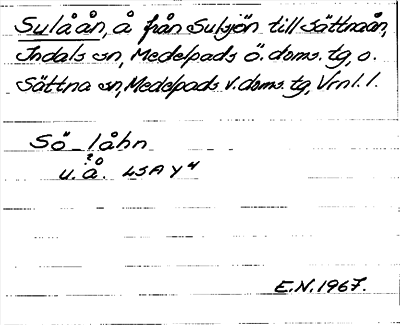 Sulåån, å från Sulsjön till Sättnaån,
Indals sn, Medelpads ö. doms. tg, o.
Sättna sn, Medelpads v. doms. tg, Vrnl. l.
Sö_låhn
u.å. LSA Y4
E.N. 1967.